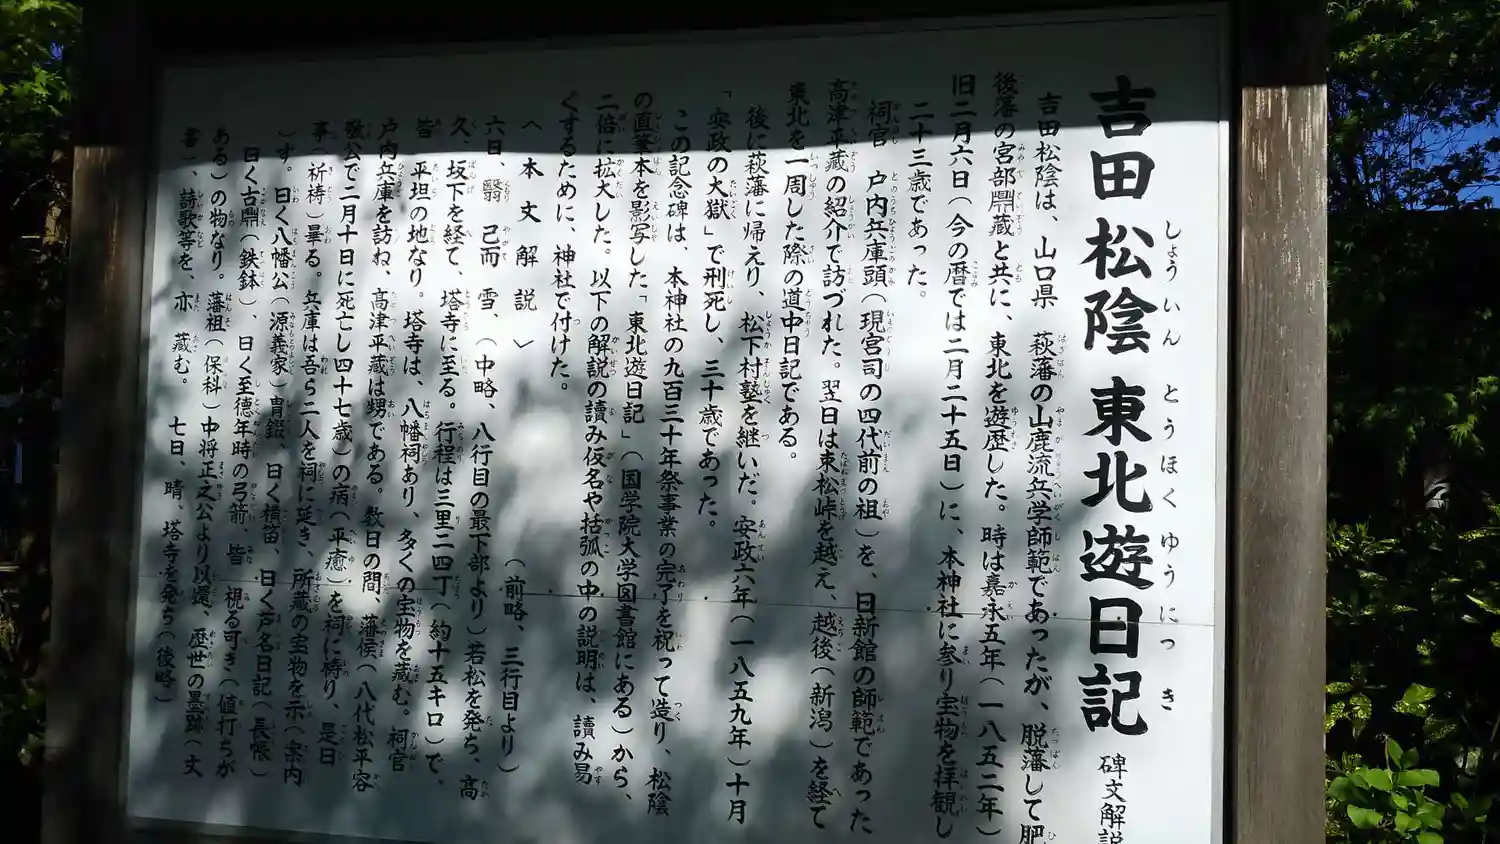 吉田松陰 東北遊日記 碑文解説
しょういん とうほくゆうにっき
吉田松陰は、山口県 萩藩の山鹿流兵学師範であったが、脱藩して肥
後藩の宮部鼎蔵と共に、東北を遊歴した。時は嘉永五年(一八五二年)
旧二月六日(今の暦では二月二十五日)に、本神社に参り宝物を拝観し
二十三歳であった。
祠官 戸内兵庫頭(現宮司の四代前の祖)を、日新館の師範であった
高津平蔵の紹介で訪づれた。翌日は束松峠を越え、越後(新潟)を経て
東北を一周した際の道中日記である。
後に萩藩に帰えり、松下村塾を継いだ。安政六年(一八五九年)十月
「安政の大獄」で刑死し、三十歳であった。
この記念碑は、本神社の九百三十年祭事業の完了を祝って造り、松陰
の直筆本を影写した「東北遊日記」(国学院大学図書館にある)から、
二倍に拡大した。以下の解説の讀み仮名や括弧の中の説明は、讀み易
くするために、神社で付けた。
〈本文解説〉 (前略、三行目より)
六日、翳 已而 雪、(中略、八行目の最下部より)若松を発ち、高
久、坂下を経て、塔寺に至る。行程は三里二四丁(約十五キロ)で、
皆 平坦の地なり。塔寺は、八幡祠あり、多くの宝物を蔵む。祠官
戸内兵庫を訪ね、高津平蔵は甥である。数日の間 藩侯(八代松平容
敬公で二月十日に死亡し四十七歳)の病(平癒)を祠に祷り、是日
事(祈祷)畢る。兵庫は吾ら二人を祠に延き、所蔵の宝物を示(案内
)す。曰く八幡公(源義家)冑錣、曰く横笛、曰く芦名日記(長帳)
曰く古鼎(鉄鉢)、曰く至徳年時の弓箭、皆 視る可き(値打ちが
ある)の物なり。藩祖(保科)中将正之公より以還、歴世の墨跡(文
書)、詩歌等を、亦 蔵む。 七日、晴、塔寺を発ち(後略)